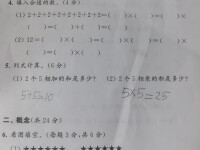 4. 填入合适的数。(4分)
(1) 2+2+2+2+2+2+2+2=( )×( )=( )
( )=( )+( )=( )
(2) 12=( )×( )=( )×( )=( )×( )=( )
×( )
5. 列式计算。(6分)
(1) 2个5相加的和是多少? (2) 2个5相乘的积是多少?
5+5=10 5×5=25
二、概念(共24分)
6. 看图填空。(每题3分,共6分)
(1) ★★★★★★ ★★★★★★